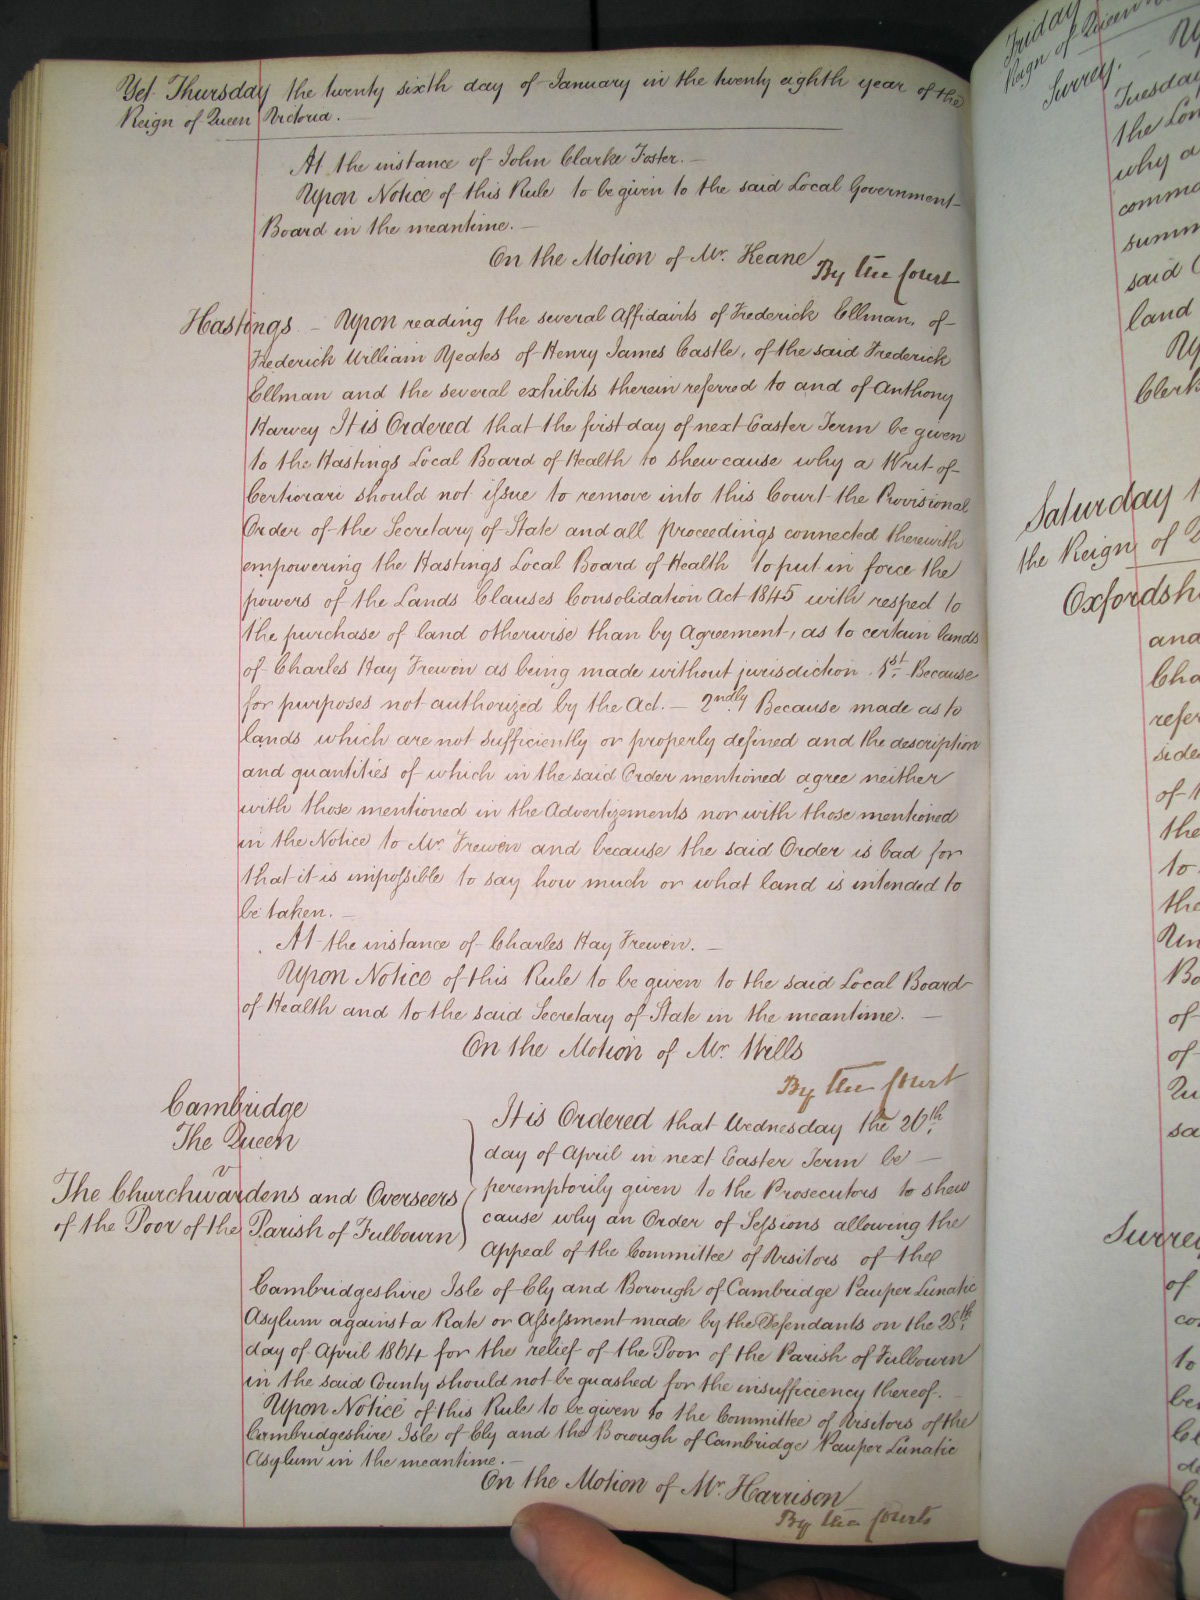 Yet Thursday the twenty sixth day of January in the twenty eighth year of the
Reign of Queen Victoria.
At the instance of John Clarke Foster. —
Upon Notice of this Rule to be given to the said Local Government
Board in the meantime. —
On the Motion of Mr. Keane
By the Court
Hastings — Upon reading the several Affidavits of Frederick Ellman, of
Frederick William Yeates of Henry James Castle, of the said Frederick
Ellman and the several exhibits therein referred to and of Anthony
Harvey It is Ordered that the first day of next Easter Term be given
to the Hastings Local Board of Health to shew cause why a Writ of
Certiorari should not issue to remove into this Court the Provisional
Order of the Secretary of State and all proceedings connected therewith
empowering the Hastings Local Board of Health to put in force the
powers of the Lands Clauses Consolidation Act 1845 with respect to
the purchase of land otherwise than by Agreement, as to certain lands
of Charles Hay Frewen as being made without jurisdiction. 1st. Because
for purposes not authorized by the Act. — 2ndly Because made as to
lands which are not sufficiently or properly defined and the description
and quantities of which in the said Order mentioned agree neither
with those mentioned in the Advertizements nor with those mentioned
in the Notice to Mr. Frewen and because the said Order is bad for
that it is impossible to say how much or what land is intended to
be taken. —
At the instance of Charles Hay Frewen. —
Upon Notice of this Rule to be given to the said Local Board
of Health and to the said Secretary of State in the meantime. —
On the Motion of Mr. Wills
By the Court
Cambridge
The Queen
v
The Churchwardens and Overseers
of the Poor of the Parish of Fulbourn
It is Ordered that Wednesday the 26th.
day of April in next Easter Term be —
peremptorily given to the Prosecutors to shew
cause why an Order of Sessions allowing the
Appeal of the Committee of Visitors of the
Cambridgeshire Isle of Ely and Borough of Cambridge Pauper Lunatic
Asylum against a Rate or Assessment made by the Defendants on the 28th.
day of April 1864 for the relief of the Poor of the Parish of Fulbourn
in the said County should not be quashed for the insufficiency thereof. —
Upon Notice of this Rule to be given to the Committee of Visitors of the
Cambridgeshire Isle of Ely and the Borough of Cambridge Pauper Lunatic
Asylum in the meantime. —
On the Motion of Mr. Harrison
By the Court
Friday
Reign of Queen
Surrey. —
Tuesday
the
why a
summ
said
land
Clerk
Saturday
the Reign of
Oxfordsh
and
Cha
refer
side
of
the
to
the
Un
Bo
of
of
Qu
sa
Surrey
of
co
to
be